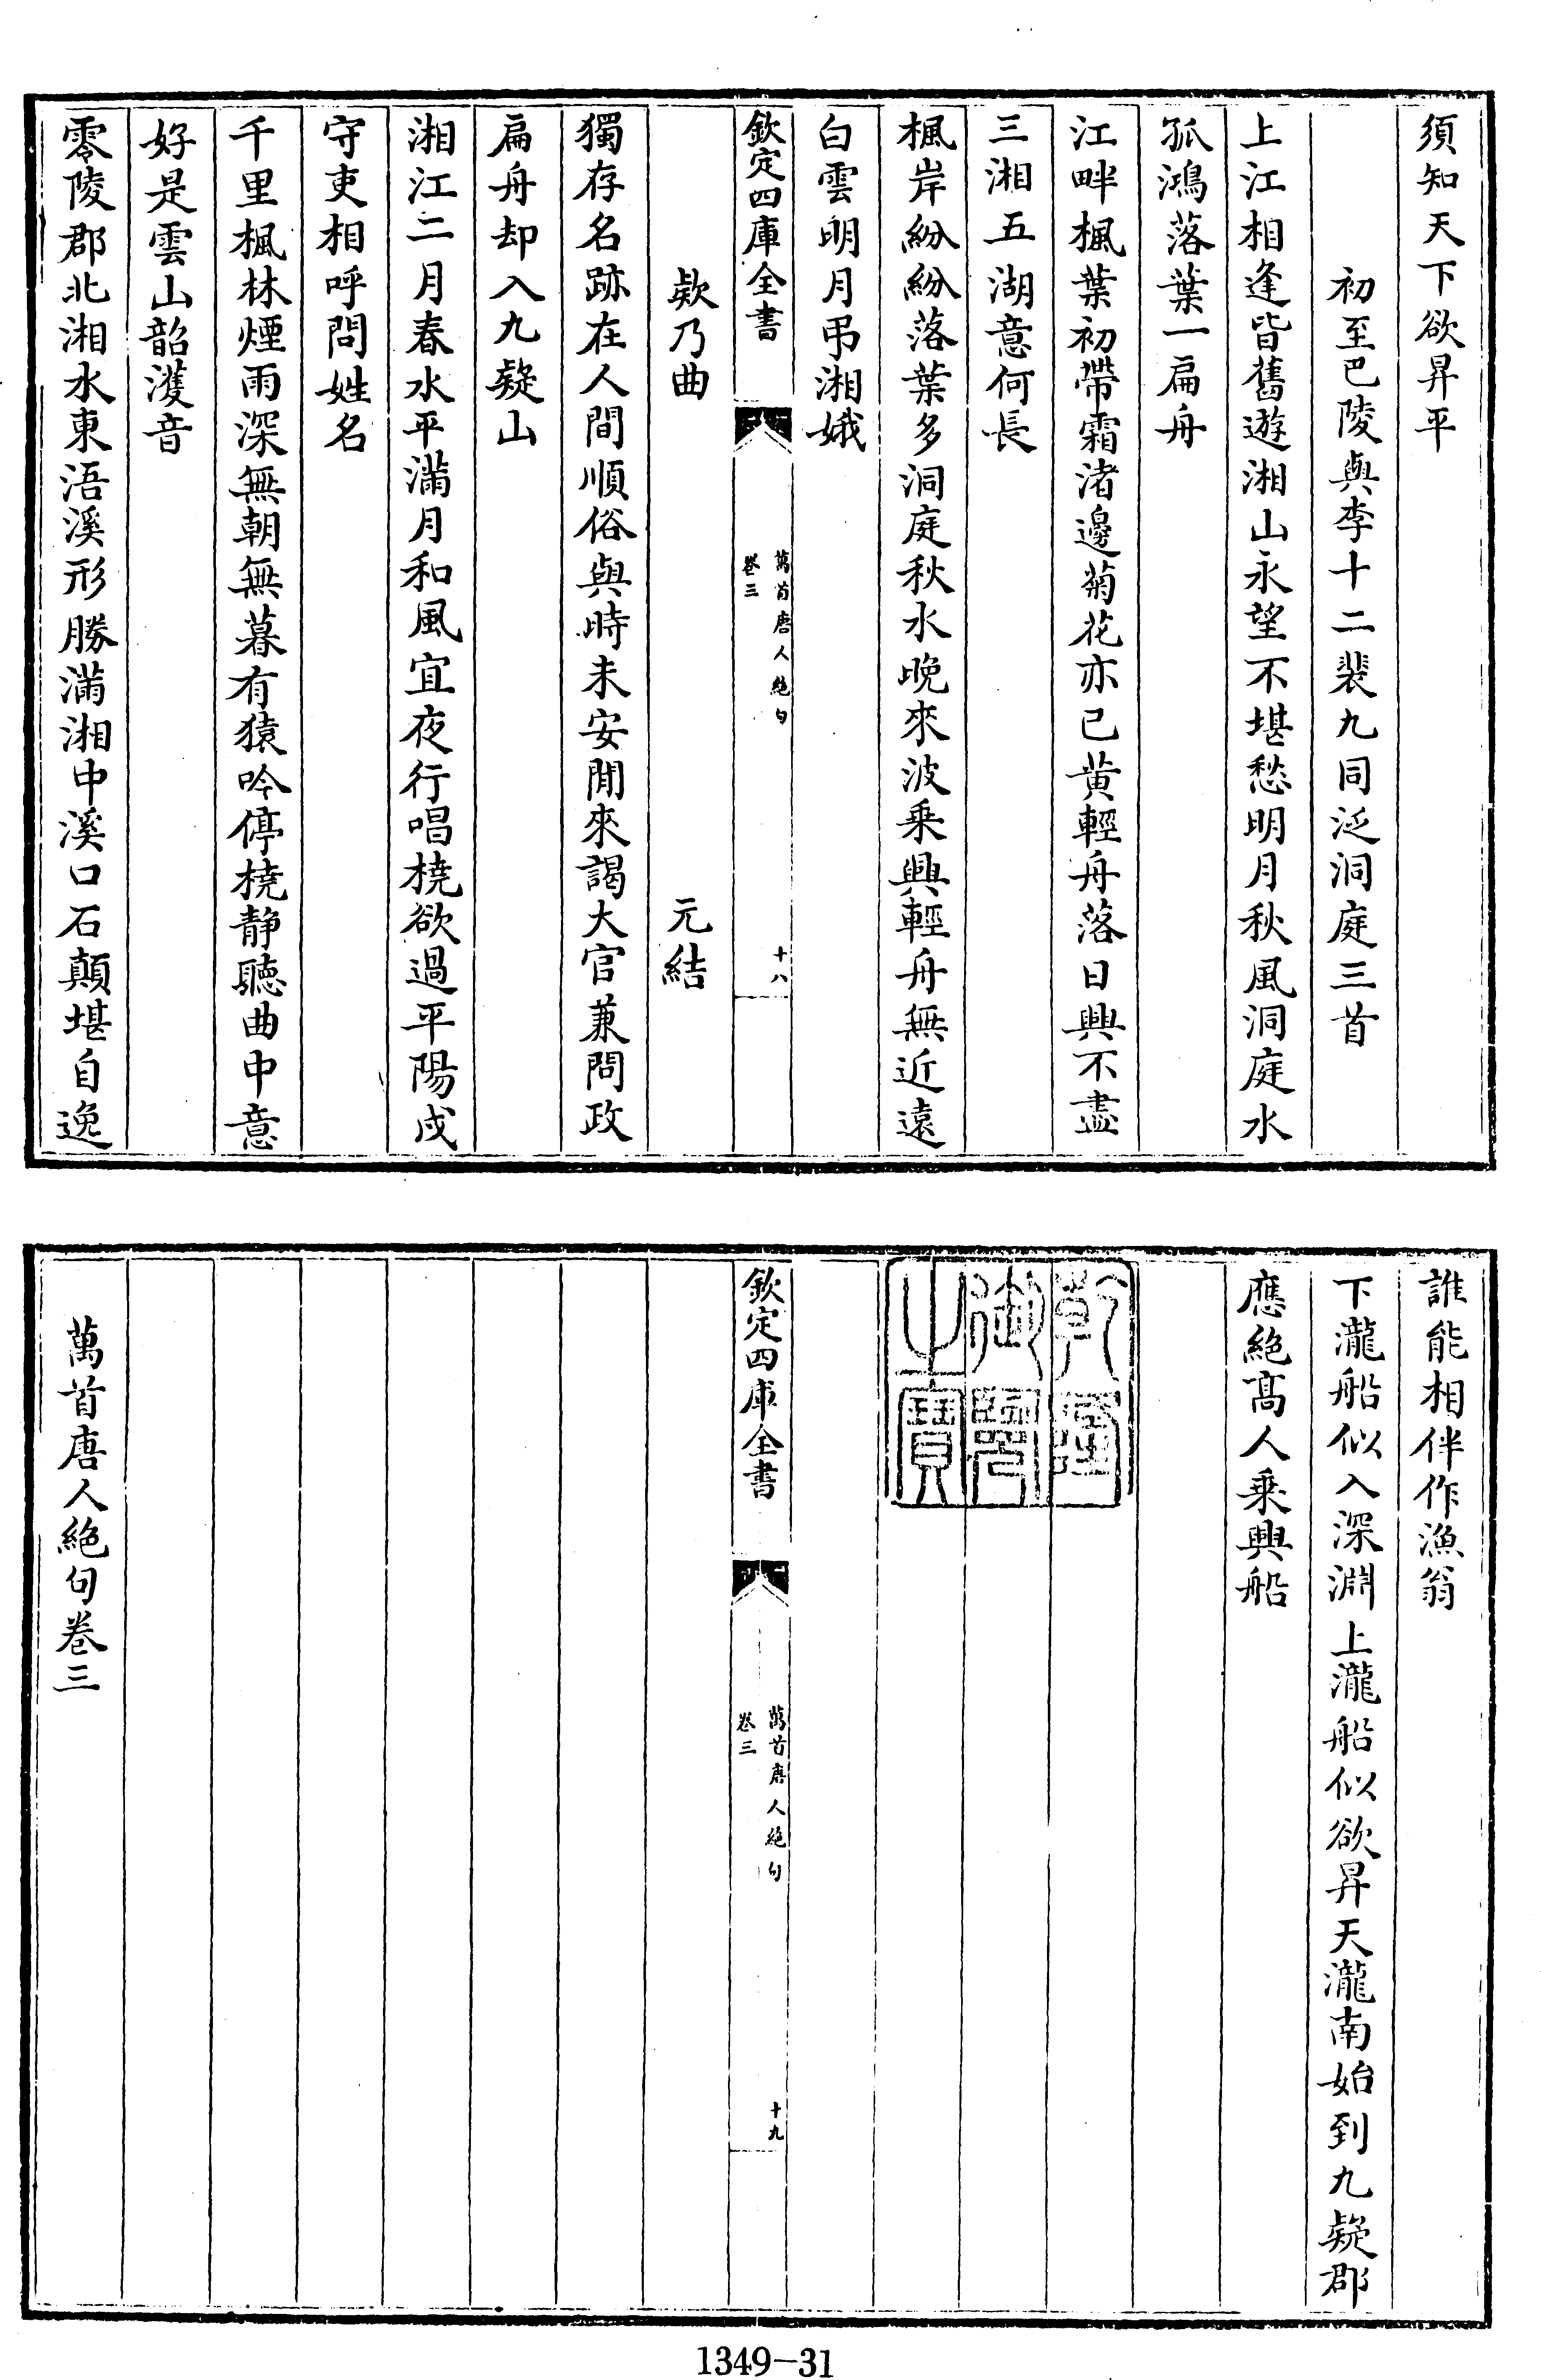 須知天下欲昇平
初至巴陵與李十二裴九同泛洞庭三首
上江相逢皆舊遊湘山永望不堪愁明月秋風洞庭水
孤鴻落葉一扁舟
江畔楓葉初帶霜渚邊菊花亦已黄輕舟落日興不盡
三湘五湖意何長
楓岸紛紛落葉多洞庭秋水晚來波乘興輕舟無近遠
白雲明月弔湘娥
欽定四庫全書
萬首唐人絶句
卷三
十八
欸乃曲 元結
獨存名跡在人間順俗與時未安閒來謁大官兼問政
扁舟却入九疑山
湘江二月春水平滿月和風宜夜行唱橈欲過平陽戍
守吏相呼問姓名
千里楓林煙雨深無朝無暮有猿吟停橈静聽曲中意
好是雲山韶濩音
零陵郡北湘水東浯溪形勝滿湘中溪口石顛堪自逸
誰能相伴作漁翁
下瀧船似入深淵上瀧船似欲昇天瀧南始到九疑郡
應絶髙人乘興船
乾隆
御覽
之寶
欽定四庫全書
萬首唐人絶句
卷三
十九
萬首唐人絶句卷三
1349-31